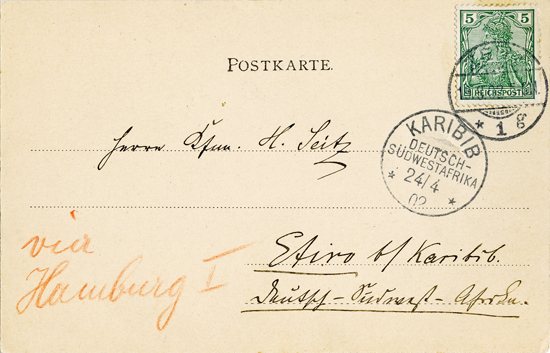 5 5
REICHSPOST
* 1 g
POSTKARTE.
KARIBIB
DEUTSCH-
SÜDWESTAFRIKA
* 24/4 *
02
Herrn Kfm. H. Seitz
via
Hamburg I
Etiro b/ Karibib.
Deutsch-Südwest-Afrika.